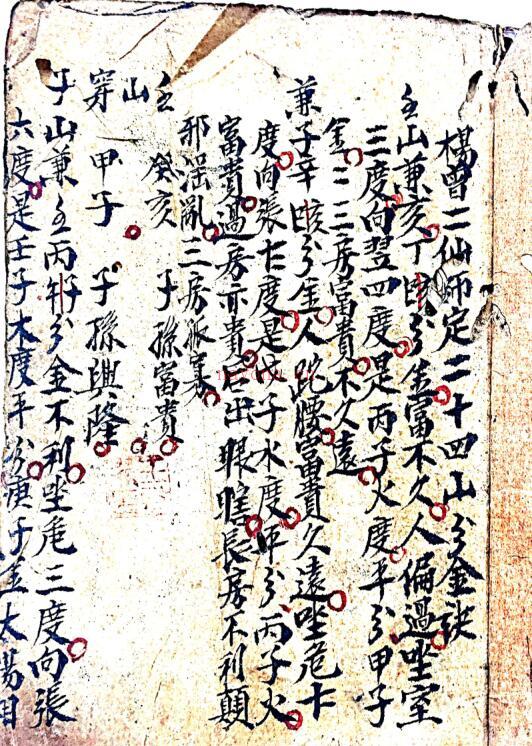 楊曾二仙師定二十四山分金訣
壬山兼亥丁分金富不久人偏過坐室
三度向翌四度是丙子火度平分甲子
金二三房富貴不久遠
兼子辛分金人跎腰富貴久遠坐危十
度向張七度是戊子水度平分丙子火
富貴過房亦貴后出眼瞎長房不利顛
邪淫亂三房孤寡
壬 癸亥 子孫富貴
山
穿 甲子 子孫興隆
子山兼壬丙分金不利坐危三度向張
六度是壬子木度平分庚子土太陽日